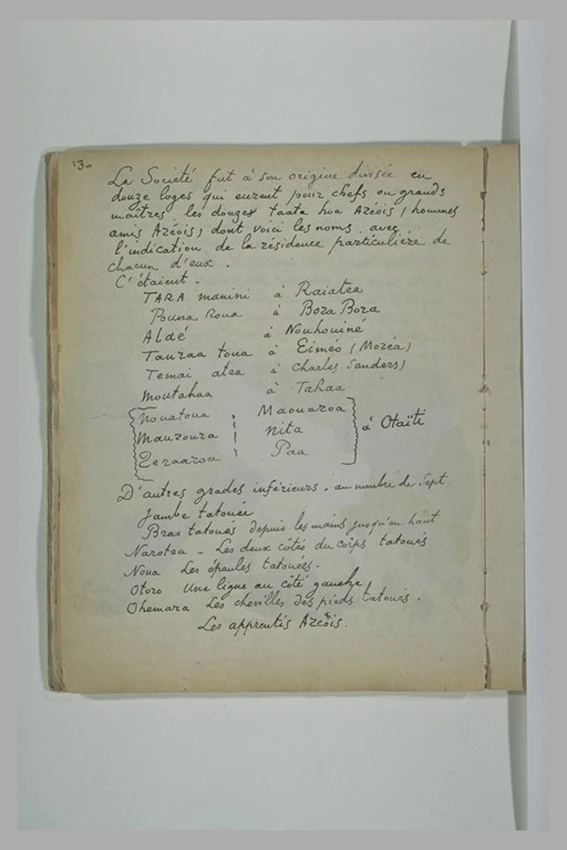 130
La Societé fut à son origine divisée en
douze loges qui eurent pour chefs ou grands
maîtres les douzes taata hua Aréois (hommes
amis Aréois) dont voici les noms avec
l'indication de la résidence particulière de
chacun d'eux.
C'étaient.
TARA manini à Raiatea
Pouna Roua à Bora Bora
Aldé à Nouhouiné
Tauraa toua à Eiméo (Moréa)
Temai atea à Charles Sanders)
Moutahaa à Tahaa
Nouatoua Maouaroa
Mauroura Nita à Otaïti
Teraaroa Paa
D'autres grades inférieurs. au nombre de Sept.
Jambe tatouée
Bras tatoués depuis les mains jusqu'en haut
Narotea - Les deux côtés du corps tatoués
Noua Les épaules tatouées -
Otoro Une ligne au côté gauche
Ohemara Les chevilles des pieds tatoués.
Les apprentis Aréois.